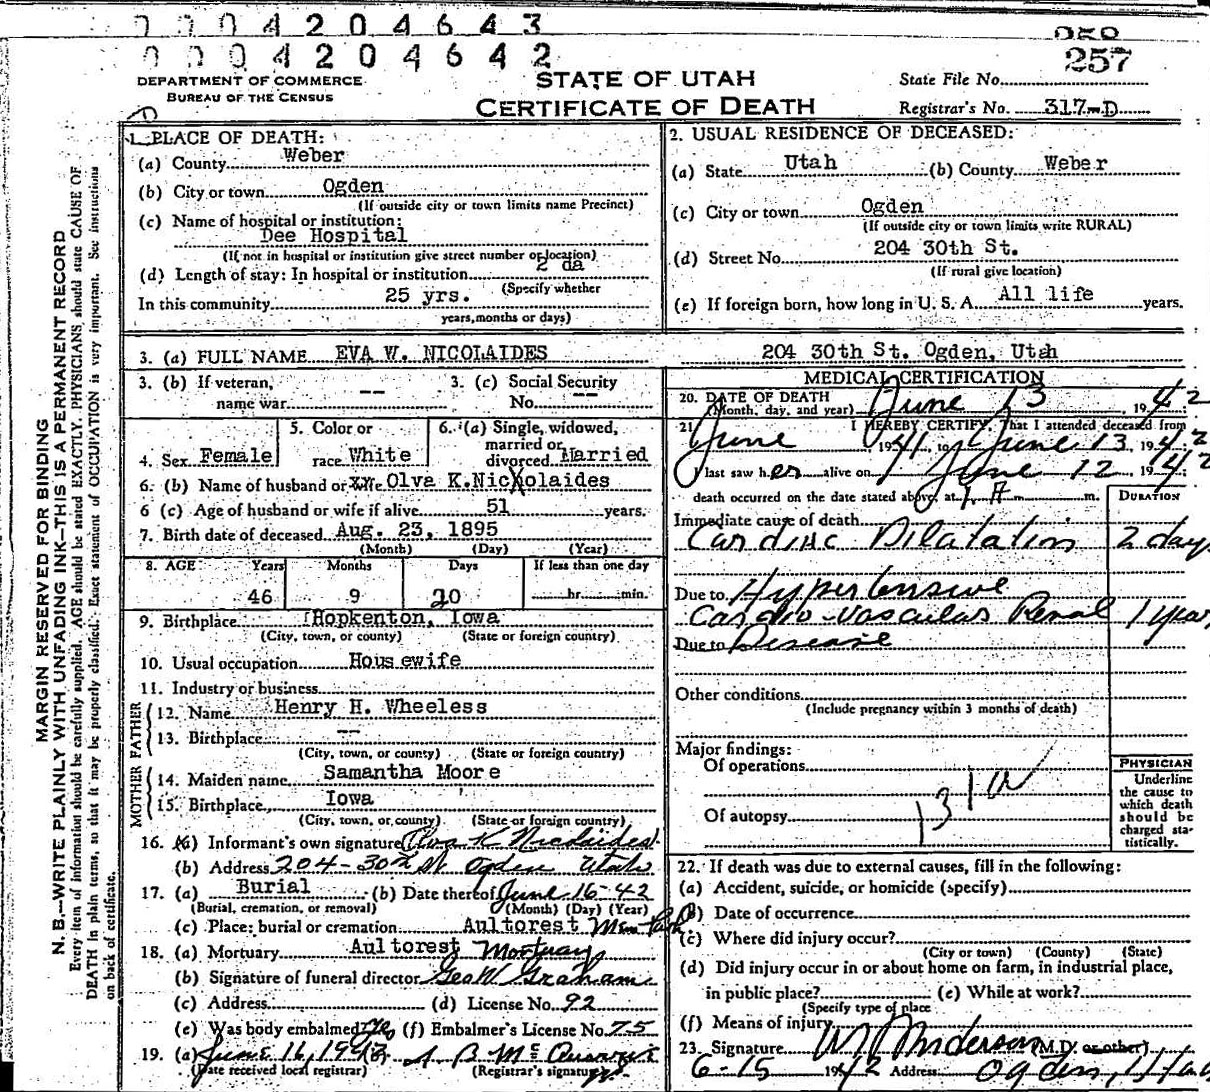 0 0 0 4 2 0 4 6 4 3
0 0 0 4 2 0 4 6 4 2
257
DEPARTMENT OF COMMERCE
BUREAU OF THE CENSUS
STATE OF UTAH
CERTIFICATE OF DEATH
State File No.
Registrar's No. 317-D
MARGIN RESERVED FOR BINDING
N. B.—WRITE PLAINLY WITH UNFADING INK—THIS IS A PERMANENT RECORD
Every item of information should be carefully supplied. AGE should be stated EXACTLY. PHYSICIANS should state CAUSE OF
DEATH in plain terms, so that it may be properly classified. Exact statement of OCCUPATION is very important. See instructions
on back of certificate.
1. PLACE OF DEATH:
(a) County Weber
(b) City or town Ogden
(If outside city or town limits name Precinct)
(c) Name of hospital or institution:
Dee Hospital
(If not in hospital or institution give street number or location)
(d) Length of stay: In hospital or institution 2 da
(Specify whether
In this community 25 yrs.
years, months or days)
2. USUAL RESIDENCE OF DECEASED:
(a) State Utah (b) County Weber
(c) City or town Ogden
(If outside city or town limits write RURAL)
(d) Street No. 204 30th St.
(If rural give location)
(e) If foreign born, how long in U. S. A. All life years.
3. (a) FULL NAME EVA W. NICOLAIDES 204 30th St. Ogden, Utah
3. (b) If veteran, name war --
3. (c) Social Security No. --
4. Sex Female
5. Color or race White
6. (a) Single, widowed, married or divorced Married
6. (b) Name of husband or wife Olva K.NicXolaides
6 (c) Age of husband or wife if alive 51 years.
7. Birth date of deceased Aug. 23, 1895
(Month) (Day) (Year)
8. AGE Years Months Days If less than one day
46 9 20 hr. min.
9. Birthplace Hopkenton, Iowa
(City, town, or county) (State or foreign country)
10. Usual occupation Housewife
11. Industry or business
FATHER
12. Name Henry H. Wheeless
13. Birthplace --
(City, town, or county) (State or foreign country)
MOTHER
14. Maiden name Samantha Moore
15. Birthplace Iowa
(City, town, or county) (State or foreign country)
16. (a) Informant's own signature Olva K Nicolaides
(b) Address 204-30th St Ogden Utah
17. (a) Burial (b) Date thereof June 16-42
(Burial, cremation, or removal) (Month) (Day) (Year)
(c) Place: burial or cremation Aultorest Mem Park
18. (a) Mortuary Aultorest Mortuary
(b) Signature of funeral director Geo W Graham
(c) Address (d) License No. 92
(e) Was body embalmed (f) Embalmer's License No. 75
19. (a) June 16, 1942
(Date received local registrar) (Registrar's signature)
MEDICAL CERTIFICATION
20. DATE OF DEATH
(Month, day, and year) June 13, 1942
21 I HEREBY CERTIFY, That I attended deceased from
June, 1941, to June 13, 1942
I last saw her alive on June 12 1942
death occurred on the date stated above, at 1 A m.
DURATION
Immediate cause of death
Cardiac Dilatation 2 days
Due to Hypertensive
Cardio-Vascular Renal 1 year
Due to Disease
Other conditions
(Include pregnancy within 3 months of death)
Major findings:
Of operations
Of autopsy
131a
PHYSICIAN
Underline
the cause to
which death
should be
charged sta-
tistically.
22. If death was due to external causes, fill in the following:
(a) Accident, suicide, or homicide (specify)
(b) Date of occurrence
(c) Where did injury occur?
(City or town) (County) (State)
(d) Did injury occur in or about home on farm, in industrial place,
in public place? (e) While at work?
(Specify type of place
(f) Means of injury
23. Signature Anderson (M.D. or other)
6-15 1942 Address Ogden, Utah